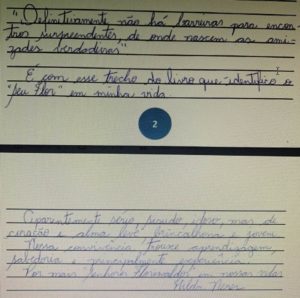 "Definitivamente não há barreiras para encon-
tros surpreendentes de onde nascem as ami-
zades verdadeiras"
É com esse trecho do livro que identifico o
"seu Flor" em minha vida.
2
Aparentemente sério, sisudo, idoso, mas de
coração e alma leve brincalhona e jovem.
Nossa convivência trouxe aprendizagem,
sabedoria e principalmente experiência.
Por mais "senhores Florisvaldos" em nossas vidas
Hilda Neres